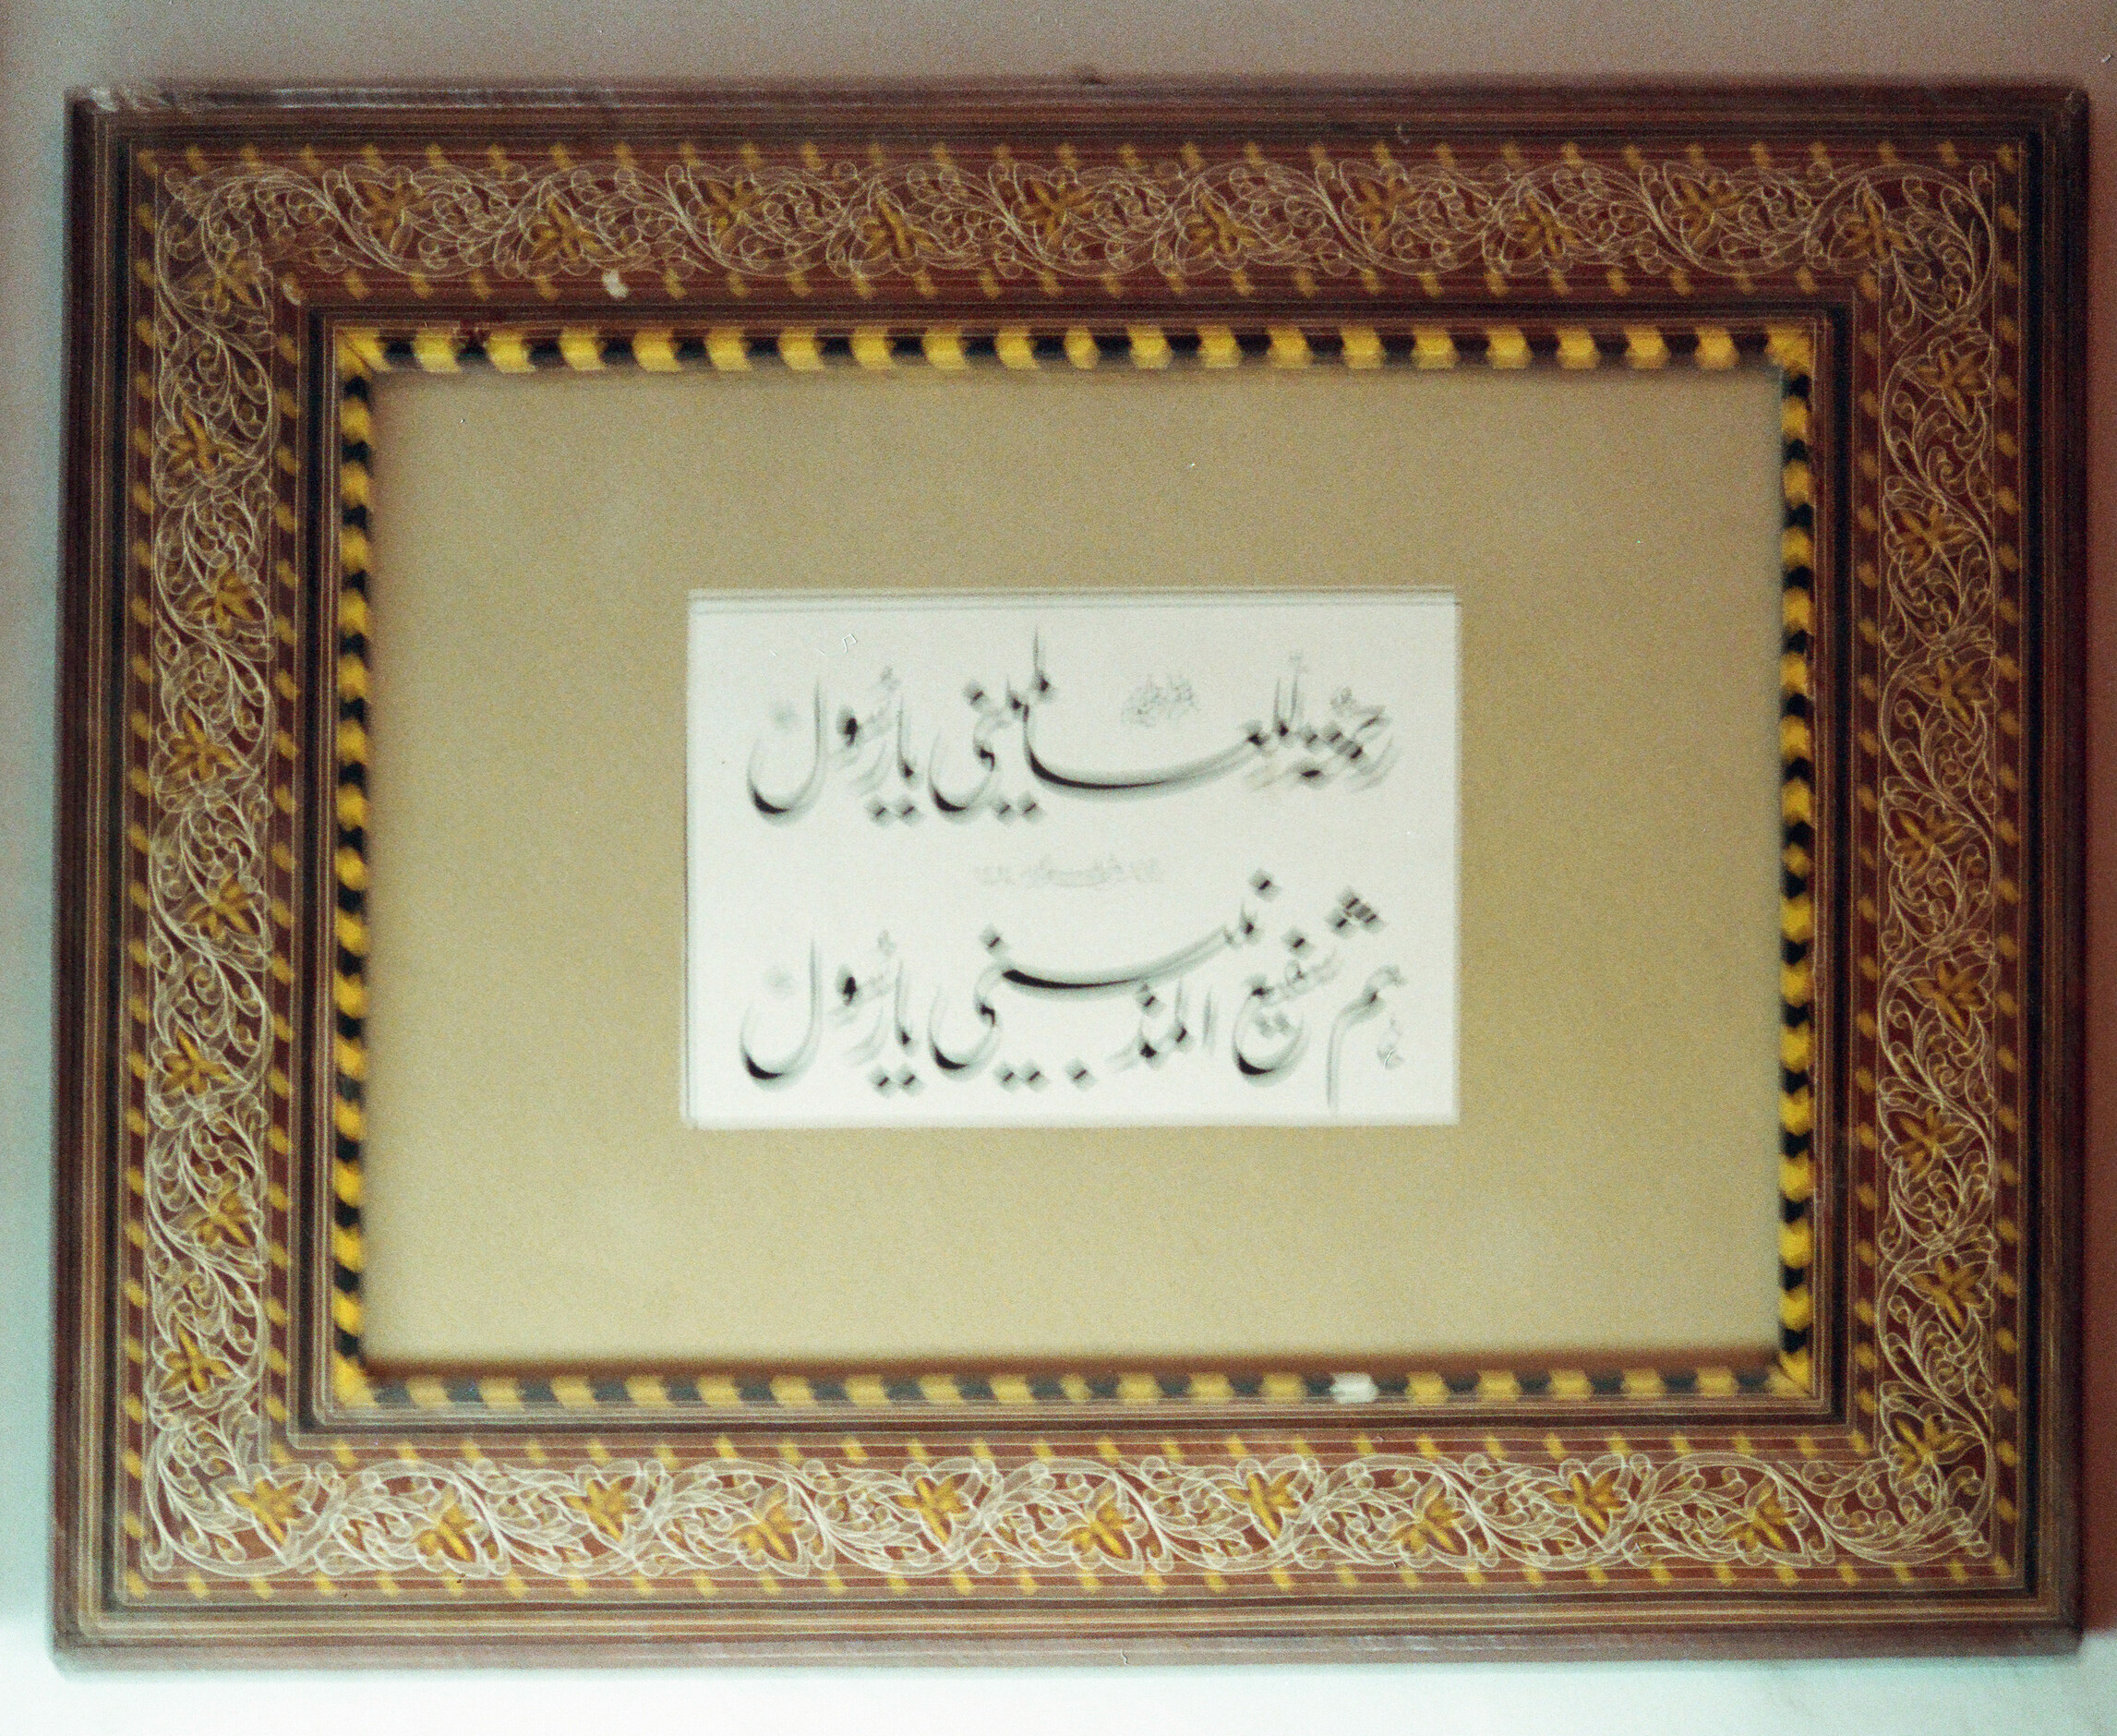 رحمة للعالمینی یا رسول
هم شفیع المذنبینی یا رسول